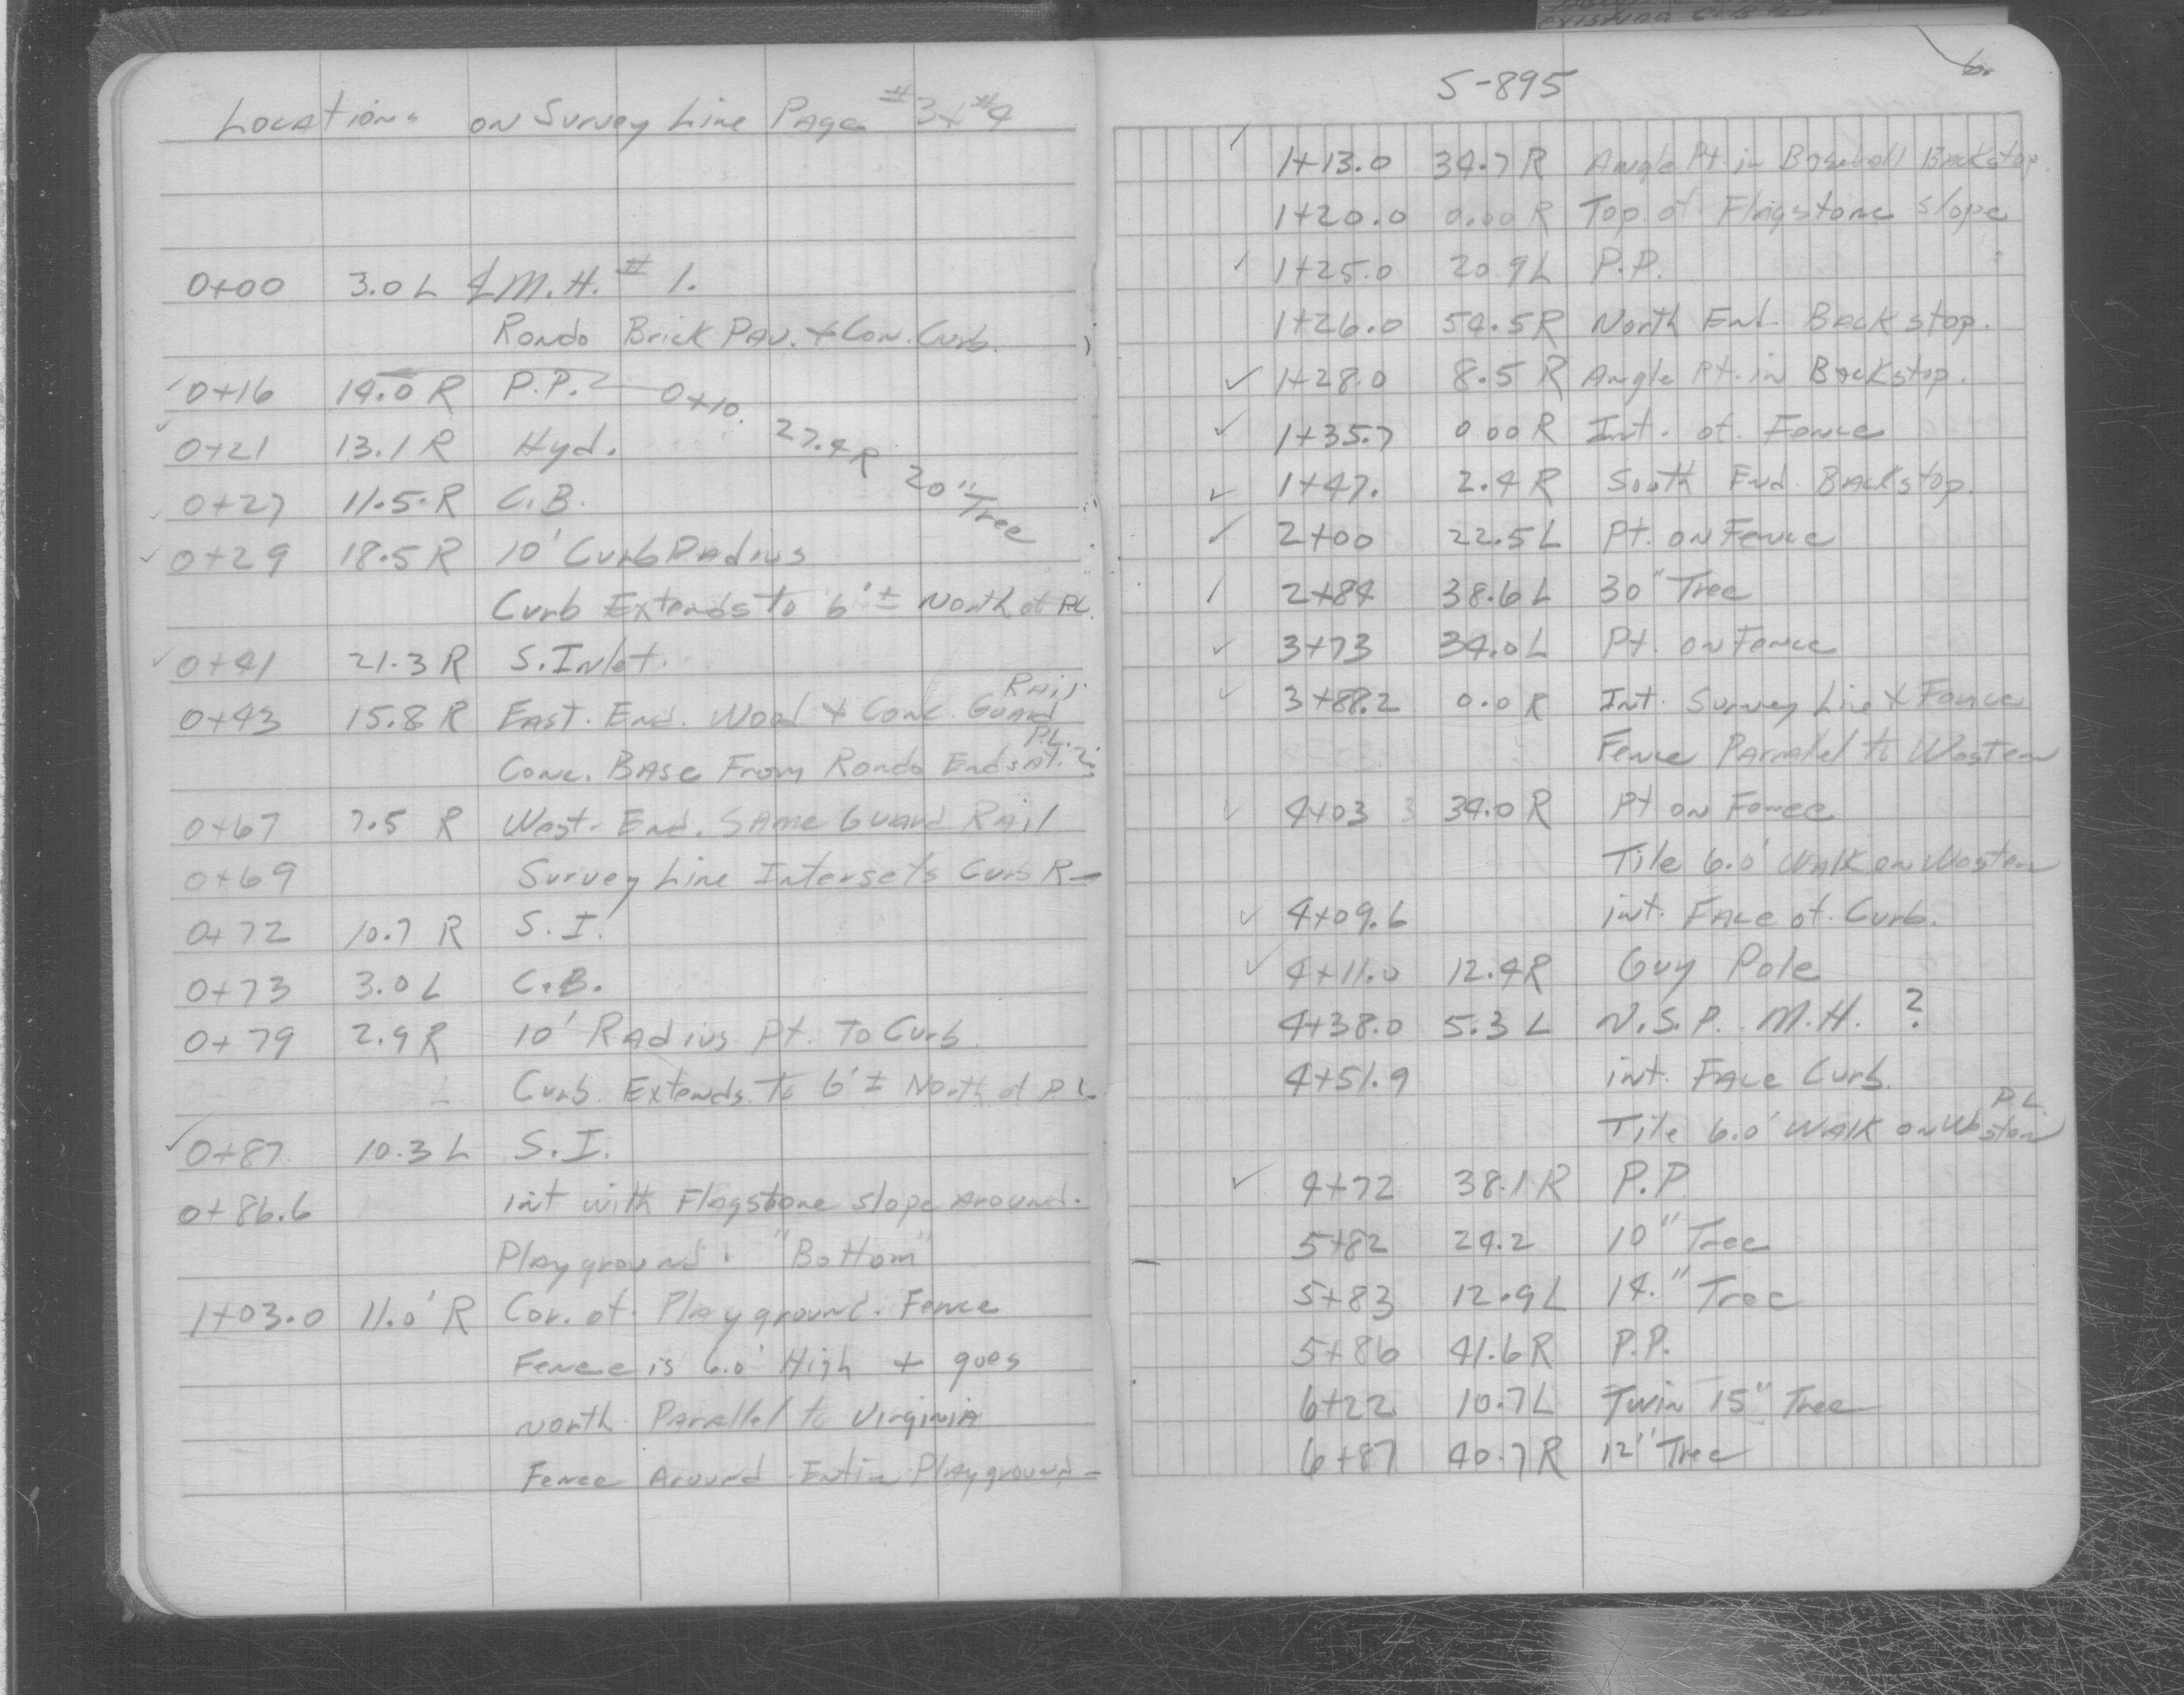 Locations on Survey Line Page #3+#4
0+00 3.0 L ℄ M.H. #1.
Rondo Brick Pav. + Con. Curb.
0+16 14.0 R P.P.
0+10. 27.4 R 20" Tree
0+21 13.1 R Hyd.
0+27 11.5 R C.B.
0+29 18.5 R 10' Curb Radius
Curb Extends to 6'± North of P.L.
0+41 21.3 R S. Inlet.
0+43 15.8 R East. End. Wood + Conc. Guard Rail.
Conc. Base From Rondo Ends at P.L.
0+67 7.5 R West. End. Same Guard Rail
0+69 Survey Line Intersets Curb R-
0+72 10.7 R S.I.
0+73 3.0 L C.B.
0+79 2.9 R 10' Radius Pt. To Curb.
Curb Extends To 6'± North of P.L.
0+87. 10.3 L S.I.
0+86.6 int with Flagstone slope around.
Playground. "Bottom"
1+03.0 11.0' R Cor. of. Playground. Fence
Fence is 6.0' High + goes
North Parallel to Virginia
Fence Around Entire Playground-
S-895
6.
1+13.0 34.7 R Angle Pt. in Baseball Backstop.
1+20.0 0.00 R Top of Flagstone slope
1+25.0 20.9 L P.P.
1+26.0 54.5 R North End. Backstop.
1+28.0 8.5 R Angle Pt. in Backstop.
1+35.7 0.00 R Int. of. Fence
1+47. 2.4 R South End. Backstop.
2+00 22.5 L Pt. on Fence
2+84 38.6 L 30" Tree
3+73 34.0 L Pt. on Fence
3+88.2 0.0 R Int. Survey Line + Fence
Fence Parralel to Western
4+03 34.0 R Pt on Fence
Tile 6.0' Walk on Western
4+09.6 int. Face of. Curb.
4+11.0 12.4 R Guy Pole
4+38.0 5.3 L N.S.P. M.H. ?
4+51.9 int. Face Curb.
Tile 6.0' Walk on Western P.L.
4+72 38.1 R P.P
5+82 24.2 10" Tree
5+83 12.9 L 14." Tree
5+86 41.6 R P.P.
6+22 10.7 L Twin 15" Tree
6+87 40.7 R 12" Tree